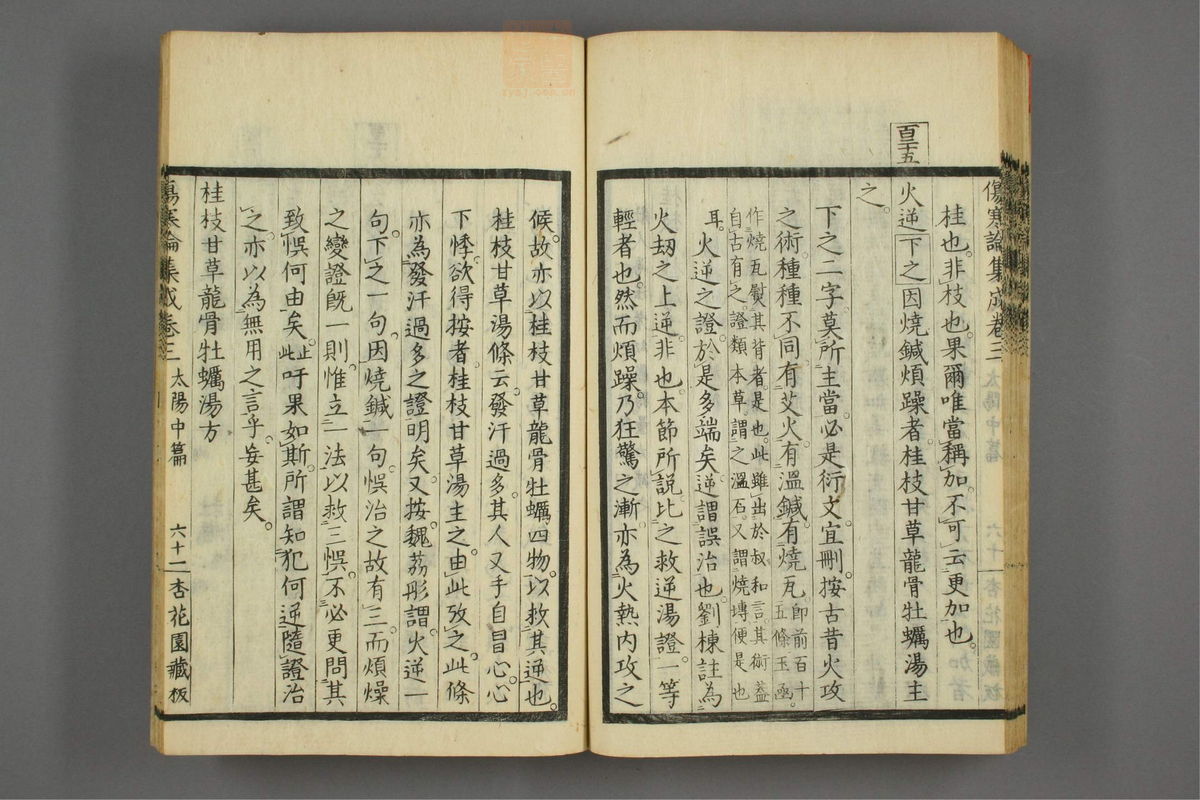 傷寒論集成卷三
桂也。非枝也。果爾唯當稱加。不可云更加也。
百十五
火逆下之因燒鍼煩躁者。桂枝甘草龍骨牡蠣湯主
之。
下之二字。莫所主當。必是衍文。宜刪。按古昔火攻
之術。種種不同。有艾火。有溫鍼。有燒瓦。
即前百十
五條。玉函
作燒瓦熨其背者。是也。此雖出於叔和言。其術蓋
自古有之。證類本草謂之溫石。又謂燒塼便是也
耳。火逆之證。於是多端矣。逆謂誤治也。劉棟註為
火劫之上逆。非也。本節所說。比之救逆湯證。一等
輕者也。然而煩躁。乃狂驚之漸。亦為火熱內攻之
候。故亦以桂枝甘草龍骨牡蠣四物。以救其逆也。
桂枝甘草湯條云。發汗過多。其人叉手自冒心。心
下悸。欲得按者。桂枝甘草湯主之。由此攷之。此條
亦為發汗過多之證明矣。又按魏荔彤謂。火逆一
句。下之一句。因燒鍼一句。悞治之故有三。而煩燥
之變證既一。則惟立一法。以救三悞。不必更問其
致悞何由矣。
止此
吁果如斯。所謂知犯何逆。隨證治
之。亦以為無用之言乎。妄甚矣。
桂枝甘草龍骨牡蠣湯方
傷寒論集成卷三 太陽中篇 六十二 杏花園藏板